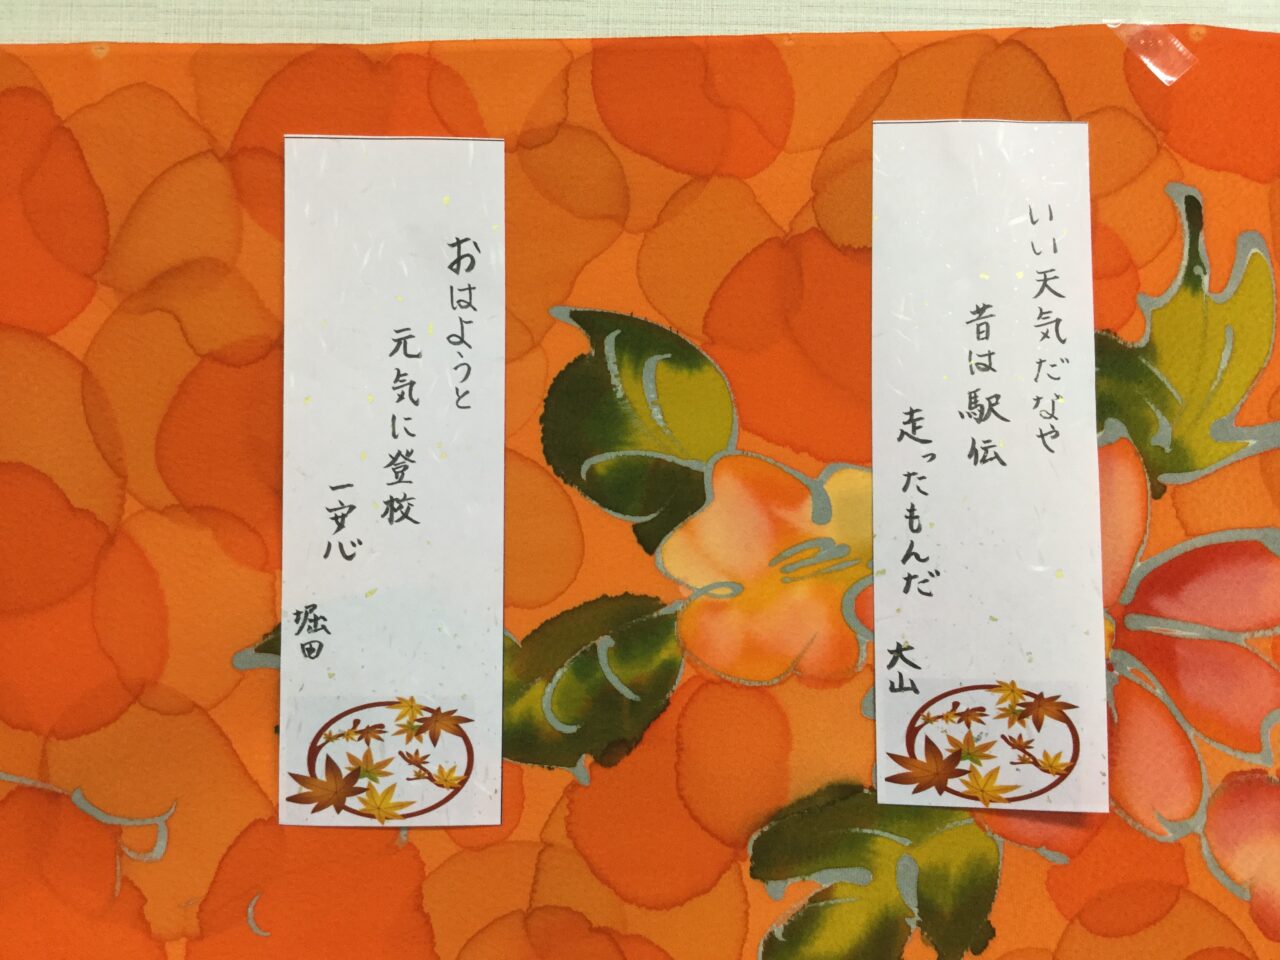 いい天気だなや
昔は駅伝
走ったもんだ
大山
おはようと
元気に登校
一安心
堀田